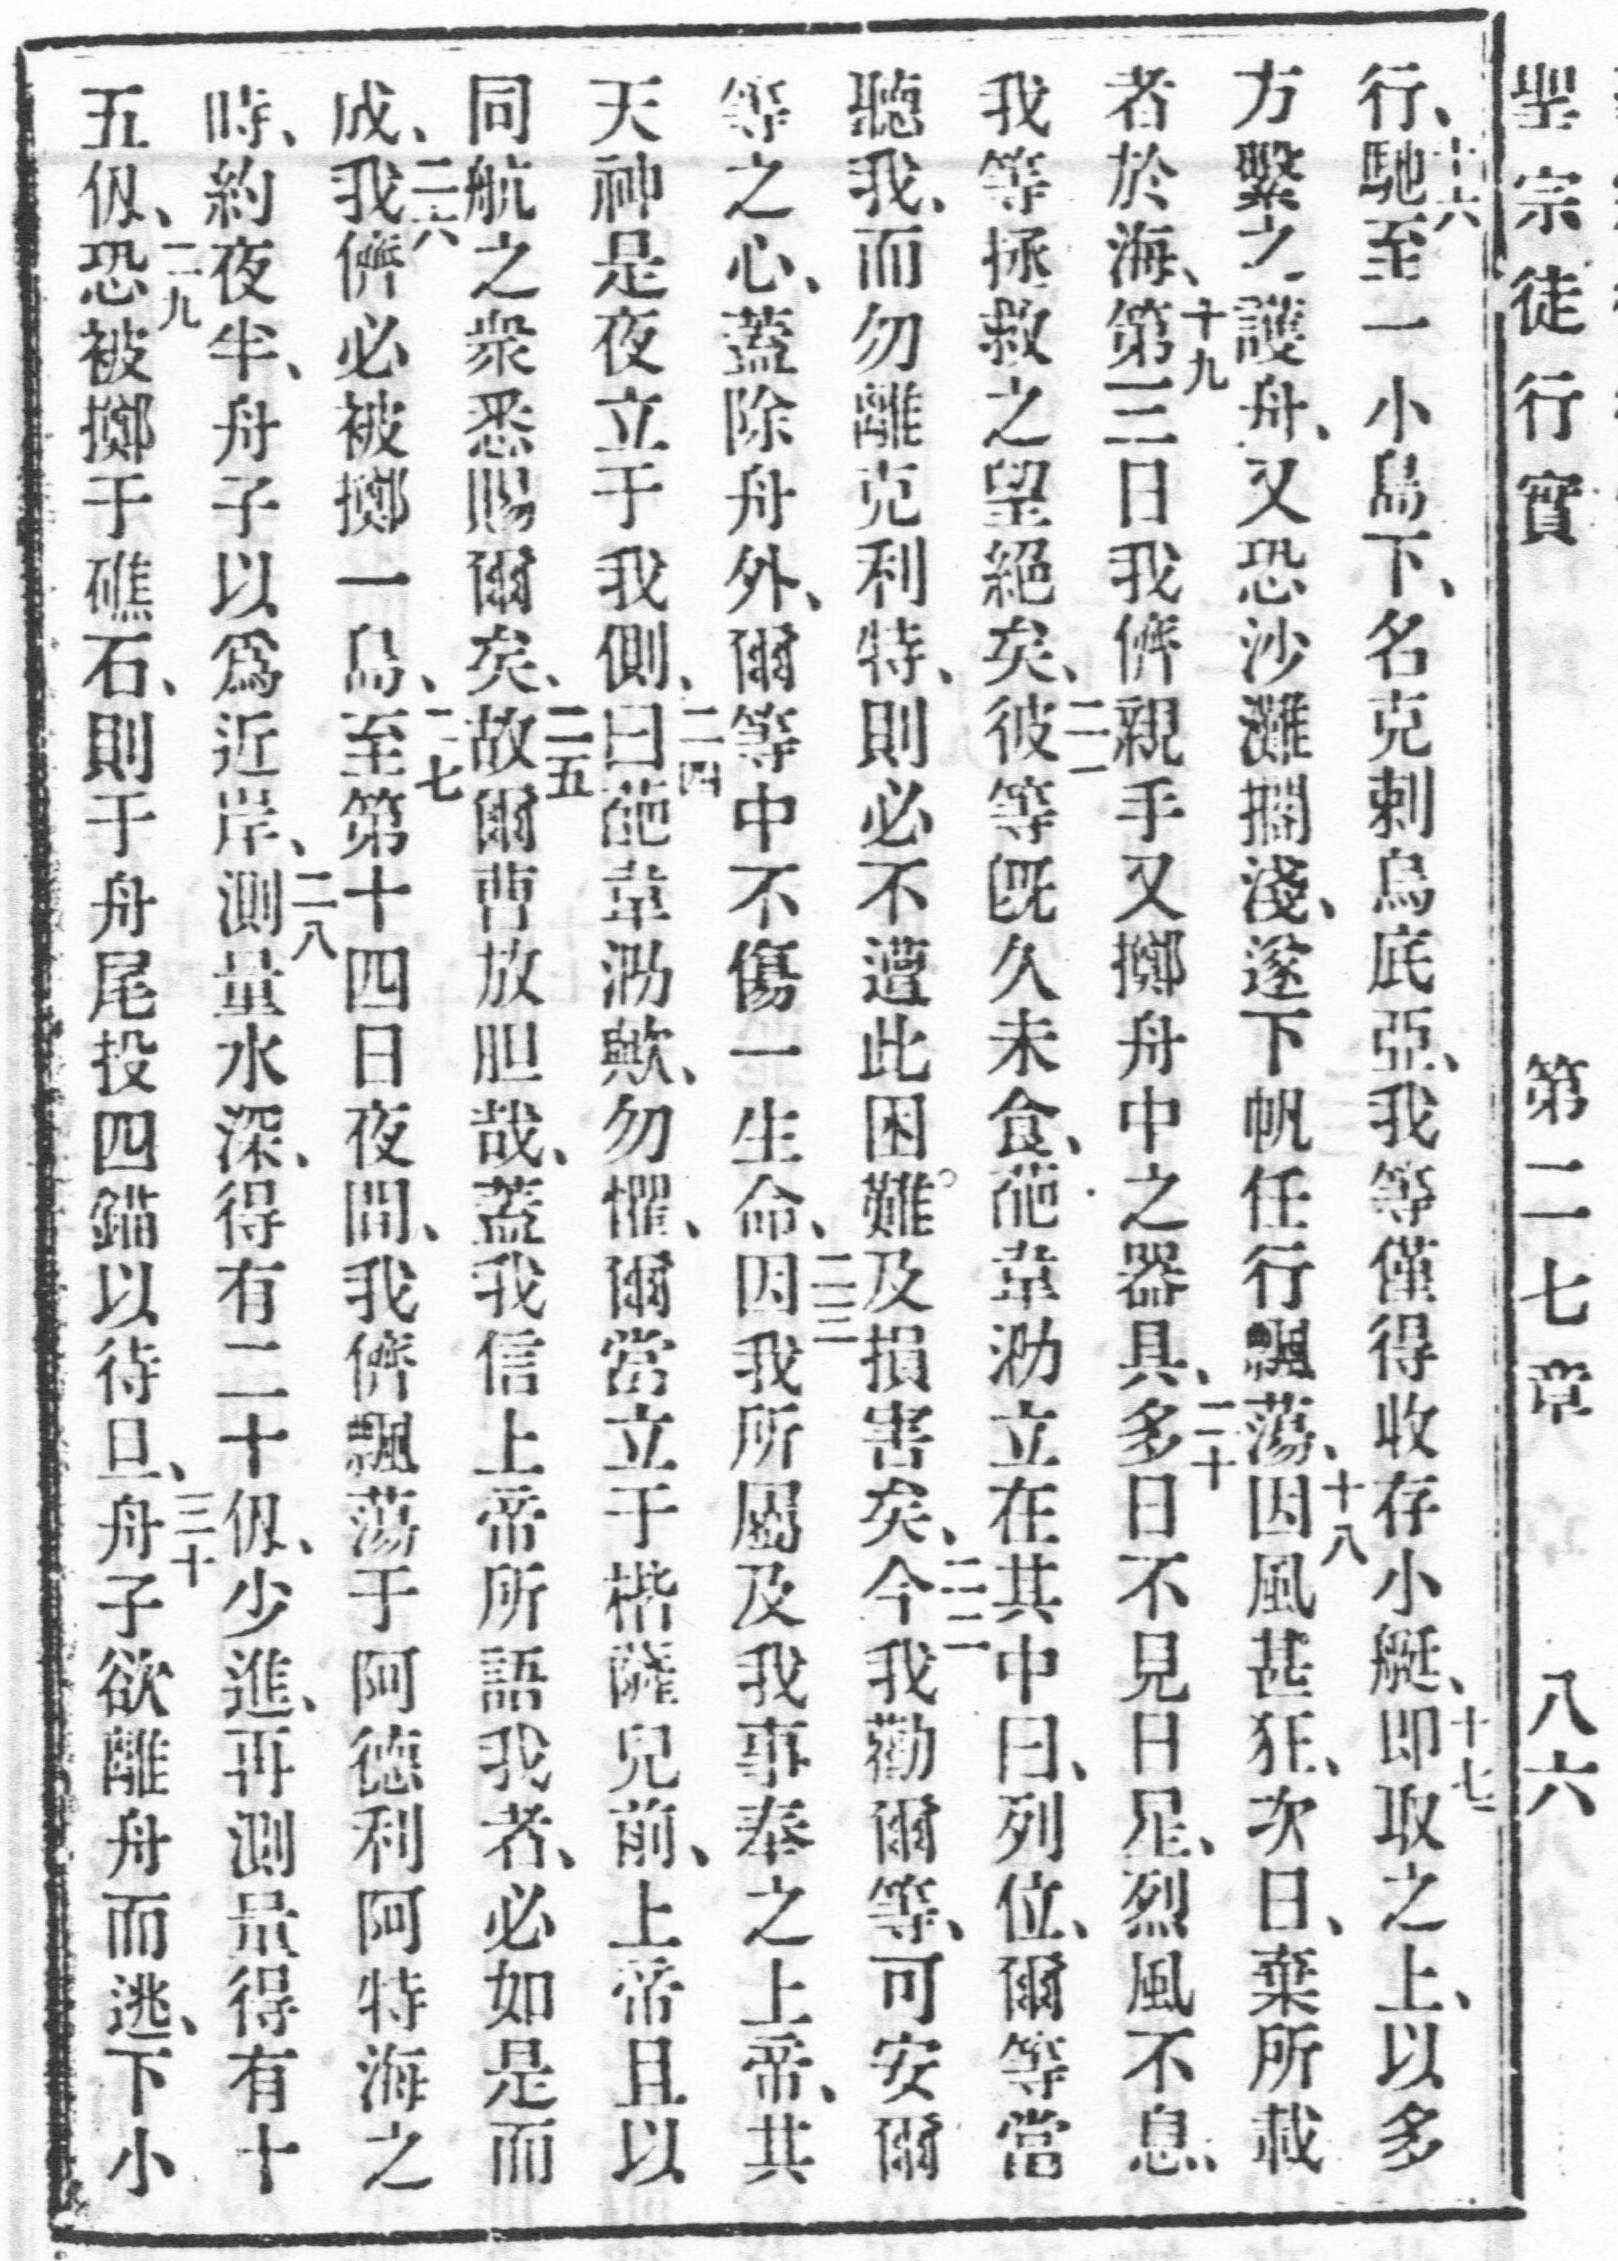 聖宗徒行實 第二七章 八六
行、十六馳至一小島下、名克剌烏底亞、我等僅得收存小艇、十七即取之上、以多
方繫之護舟、又恐沙灘擱淺、遂下帆任行飄蕩、十八因風甚狂、次日、棄所載
者於海、十九第三日我儕親手又擲舟中之器具、二十多日不見日星、烈風不息、
我等拯救之望絕矣、二一彼等旣久未食、葩韋泐立在其中曰、列位、爾等當
聽我、而勿離克利特、則必不遭此困難。及損害矣、二二今我勸爾等、可安爾
等之心、蓋除舟外、爾等中不傷一生命、二三因我所屬及我事奉之上帝、其
天神是夜立于我側、二四曰葩韋泐歟、勿懼、爾當立于楷薩兒前、上帝且以
同航之衆悉賜爾矣、二五故爾曹放胆哉、蓋我信上帝所語我者、必如是而
成、二六我儕必被擲一島、二七至第十四日夜間、我儕飄蕩于阿德利阿特海之
時、約夜半、舟子以爲近岸、二八測量水深、得有二十仭、少進、再測量得有十
五仭、二九恐被擲于礁石、則于舟尾投四錨以待旦、三十舟子欲離舟而逃、下小